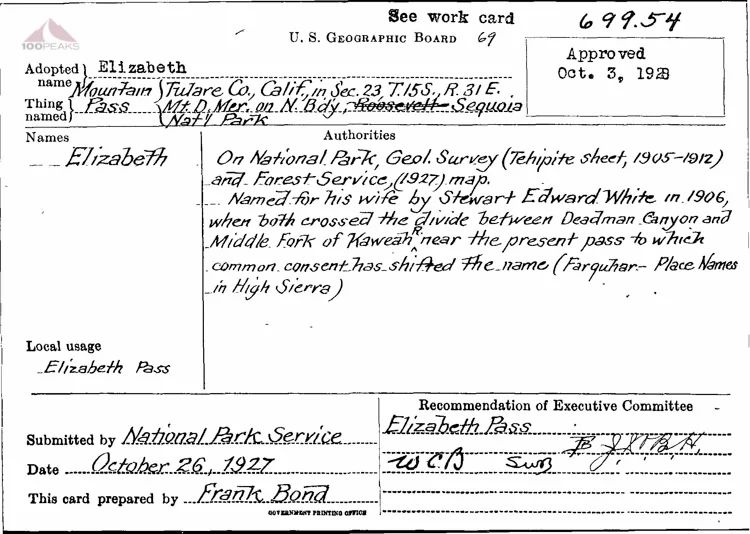 See work card
699.54
100PEAKS
U. S. GEOGRAPHIC BOARD 69
Approved
Oct. 3, 1928
Adopted name } Elizabeth
Thing named } Mountain Pass { Tulare Co., Calif., in Sec. 23, T.15S., R. 31 E.
Mt. D. Mer. on N. Bdy., Roosevelt-Sequoia
Nat'l Park
Names
Authorities
Elizabeth
On National Park, Geol. Survey (Tehipite sheet, 1905-1912)
and Forest Service, (1927) map.
Named for his wife by Stewart Edward White in 1906,
when both crossed the divide between Deadman Canyon and
Middle Fork of Kaweah R near the present pass to which
common consent has shifted the name (Farquhar- Place Names
in High Sierra)
Local usage
Elizabeth Pass
Recommendation of Executive Committee
Elizabeth Pass
Submitted by National Park Service
Date October 26, 1927
WCB SWB
This card prepared by Frank Bond
GOVERNMENT PRINTING OFFICE